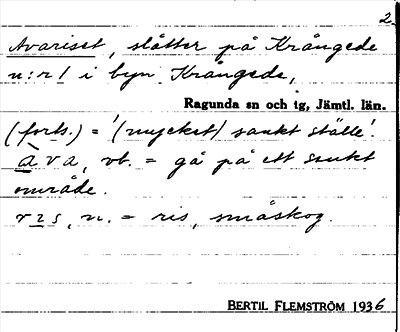 2.
Avariset, slåtter på Krångede
n:r 1 i byn Krångede,
Ragunda sn och tg, Jämtl. län.
(forts.) = '(mycket) sankt ställe'.
ava, vb. = gå på ett sankt
område.
ris, n. = ris, småskog.
BERTIL FLEMSTRÖM 1936